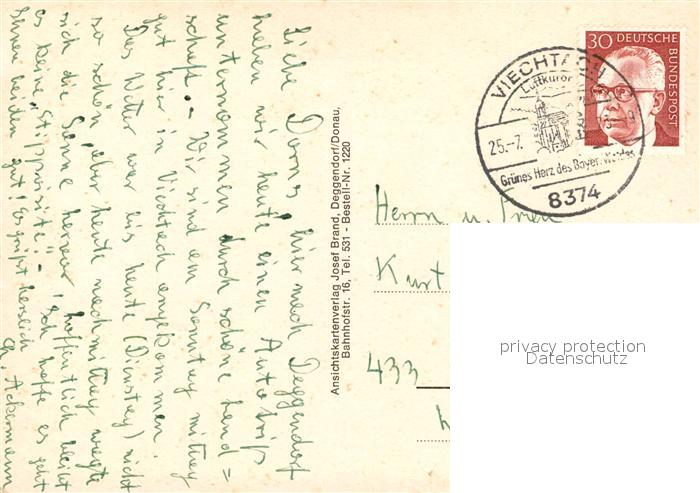 Liebe Dorns, hier nach Deggendorf
haben wir heute einen Autotrip
unternommen durch schöne Land=
schaft. - Wir sind am Sonntag mittag
gut hier in Viechtach angekommen.
Das Wetter war bis heute (Dienstag) nicht
so schön, aber heute nachmittag wagte
sich die Sonne heraus, hoffentlich bleibt
es keine "Stippvisite"! - Ich hoffe es geht
Ihnen beiden gut! Es grüßt herzlich
Ch. Ackermann
Ansichtskartenverlag Josef Brand, Deggendorf/Donau,
Bahnhofstr. 16, Tel. 531 - Bestell-Nr. 1220
VIECHTACH
Luftkurort
25.-7.
Grünes Herz des Bayer. Waldes
8374
30 DEUTSCHE
BUNDESPOST
Herrn u. Frau
Kurt
433
privacy protection
Datenschutz